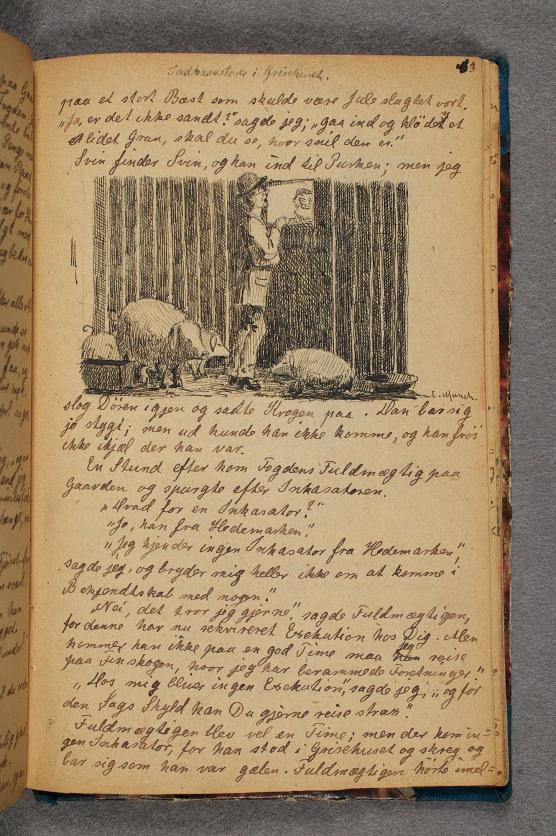 Indkassatoren i Grisehuset.
43
paa et stort Bæst som skulde være Jule slagtet vort.
"Ja, er det ikke sandt?" sagde jeg; "gaa ind og klø det et
lidet Gran, skal du se, hvor snil den er."
Svin finder Svin, og han ind til Purken; men jeg
E. Munch.
slog Døren igjen og satte Krogen paa. Han bar sig
jo stygt; men ud kunde han ikke komme, og han frøs
ikke ihjæl der han var.
En Stund efter kom Fogdens Fuldmægtig paa
Gaarden og spurgte efter Inkasatoren.
"Hvad for en Inkasator?"
"Jo, han fra Hedemarken."
"Jeg kjender ingen Inkasator fra Hedemarken",
sagde jeg, og bryder mig heller ikke om at komme i
Bekjendtskab med nogen."
"Nei, det tror jeg gjerne" sagde Fuldmægtigen,
for denne har nu rekvireret Exekution hos Dig. Men
kommer han ikke paa en god Time maa jeg reise
paa Finskogen, hvor jeg har berammede Forretninger."
"Hos mig bliver ingen Exekution, sagde jeg, og for
den Sags Skyld kan Du gjerne reise strax."
Fuldmægtigen blev vel en Time; men der kom in-
gen Inkasator, for han stod i Grisehuset og skreg og
bar sig som han var galen. Fuldmægtigen hørte imel-